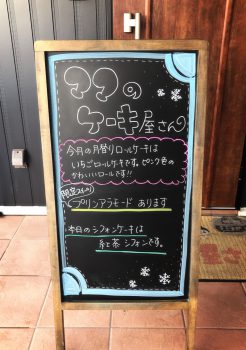 ママの
ケーキ屋さん
今月の月替りロールケーキは
いちごロールケーキです。ピンク色の
かわいいロールです!!
プリンアラモード あります
本日のシフォンケーキは
紅茶シフォンです。